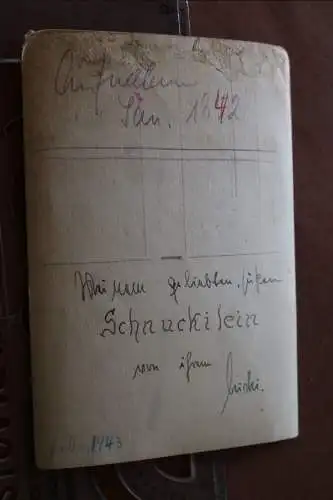 Aufnahme
Jan. 1942
Meinem geliebten, süßen
Schnuckilein
von ihrem
1943